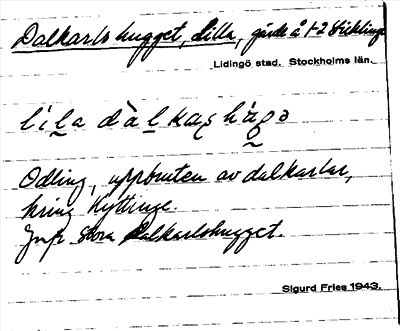 Dalkarlshugget, Lilla, gärde å 1-2 Sticklinge
Lidingö stad. Stockholms län.
lílạ dàlkaʂhàgə
Odling, uppbruten av dalkarlar,
kring Hyttinge.
Jmfr Stora Dalkarlshugget.
Sigurd Fries 1943.